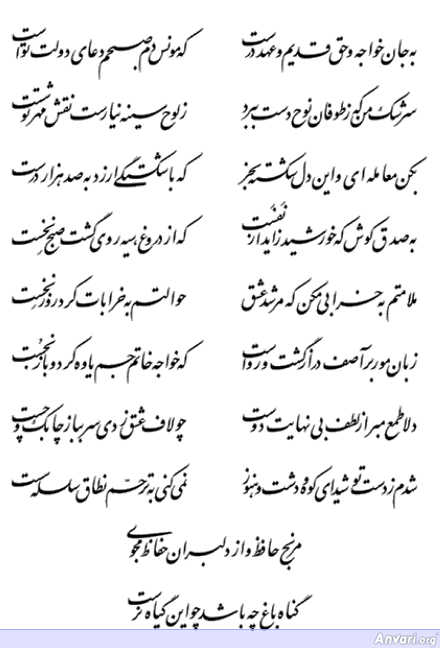 به جان خواجه و حق قدیم و عهد درست که مونس دم صبحم دعای دولت تواست
سرشک من که ز طوفان نوح دست ببرد ز لوح سینه نیارست نقش مهر تو شست
بکن معامله ای واین دل شکسته بخر که با شکستگی ارزد به صد هزار درست
به صدق کوش که خورشید زاید از نفست که از دروغ سیه روی گشت صبح نخست
ملامتم به خرابی مکن که مرشد عشق حوالتم به خرابات کرد روز نخست
زبان مور بر آصف دراز گشت و رواست که خواجه خاتم جم یاوه کرد و بازنجست
دلا طمع مبر از لطف بی نهایت دوست چو لاف عشق زدی سر بباز چابک و چست
شدم ز دست تو شیدای کوه و دشت و هنوز نمی کنی به ترحّم نطاق سلسله سست
مرنج حافظ و از دلبران حفاظ مجوی
گناه باغ چه باشد چو این گیاه نرست
Anvari.org